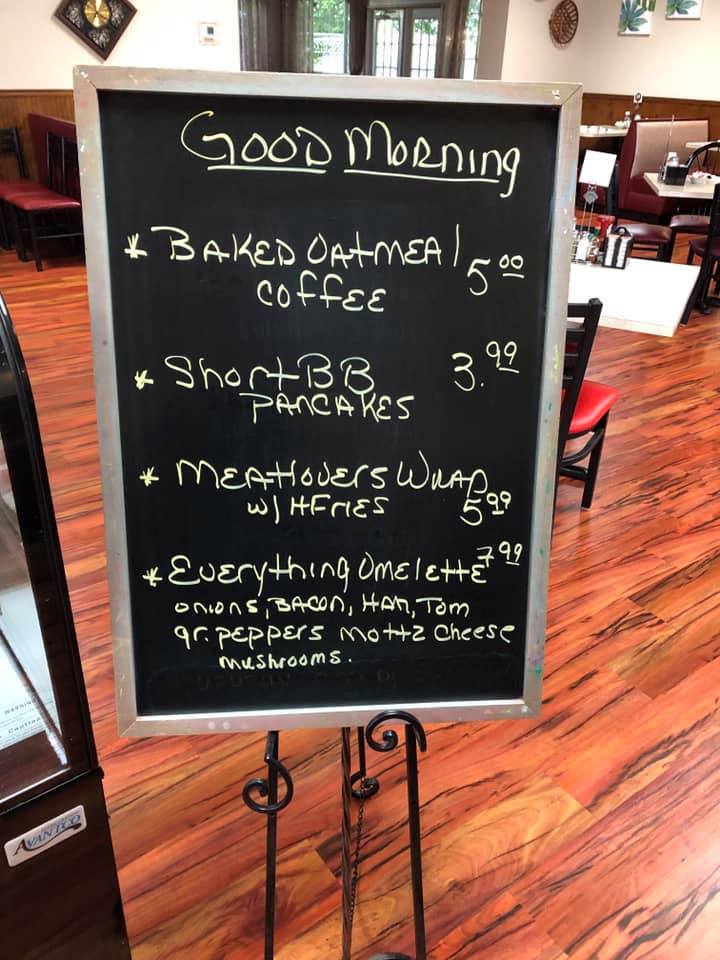 GOOD MORNING
* BAKED OATMEAL 5.00
COFFEE
* Short BB 3.99
PANCAKES
* MEATlOVERS WRAP
w/ HFRIES 5.99
* EVERYthing OMElettE 7.99
ONIONS, BACON, HAM, TOM
gr. PEPPERS Mottz CHEESE
MUSHROOMS.
WARNING
Caution
AVANTCO